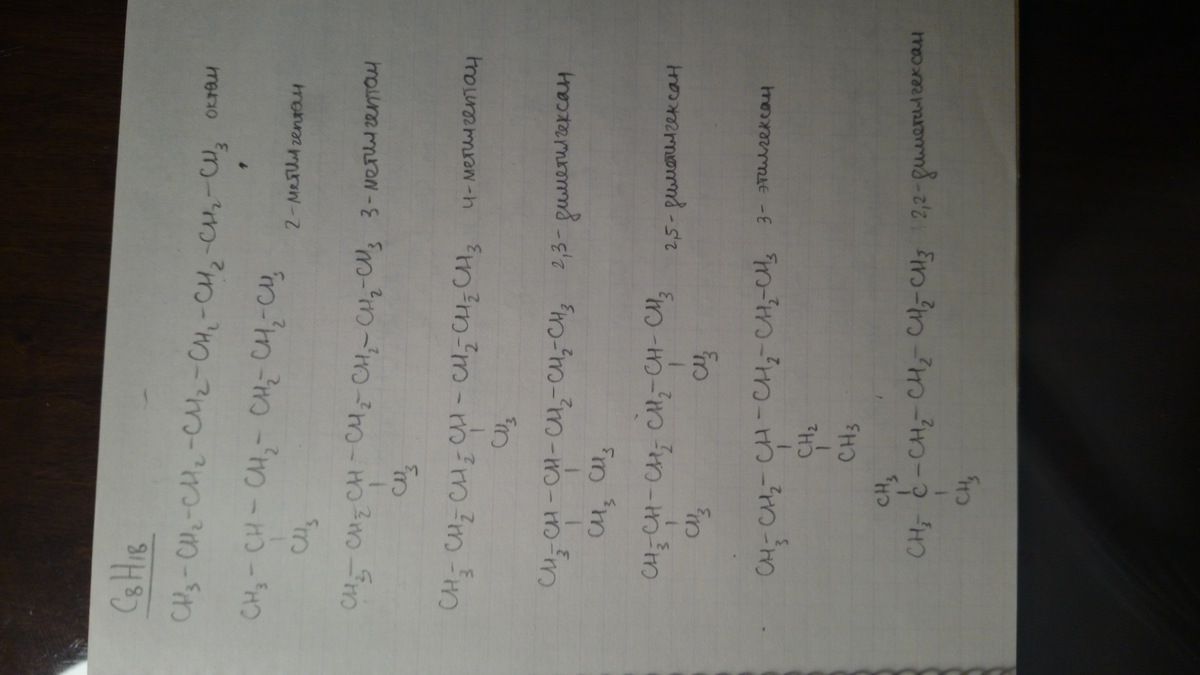 C₈H₁₈
CH₃-CH₂-CH₂-CH₂-CH₂-CH₂-CH₂-CH₃ октан
CH₃-CH-CH₂-CH₂-CH₂-CH₃ 2-метилгептан
CH₃
CH₃-CH₂-CH-CH₂-CH₂-CH₂-CH₃ 3-метилгептан
CH₃
CH₃-CH₂-CH₂-CH-CH₂-CH₂-CH₃ 4-метилгептан
CH₃
CH₃-CH-CH-CH₂-CH₂-CH₃ 2,3-диметилгексан
CH₃ CH₃
CH₃-CH-CH₂-CH₂-CH-CH₃ 2,5-диметилгексан
CH₃ CH₃
CH₃-CH₂-CH-CH₂-CH₂-CH₃ 3-этилгексан
CH₂
CH₃
CH₃
CH₃-C-CH₂-CH₂-CH₂-CH₃ 2,2-диметилгексан
CH₃